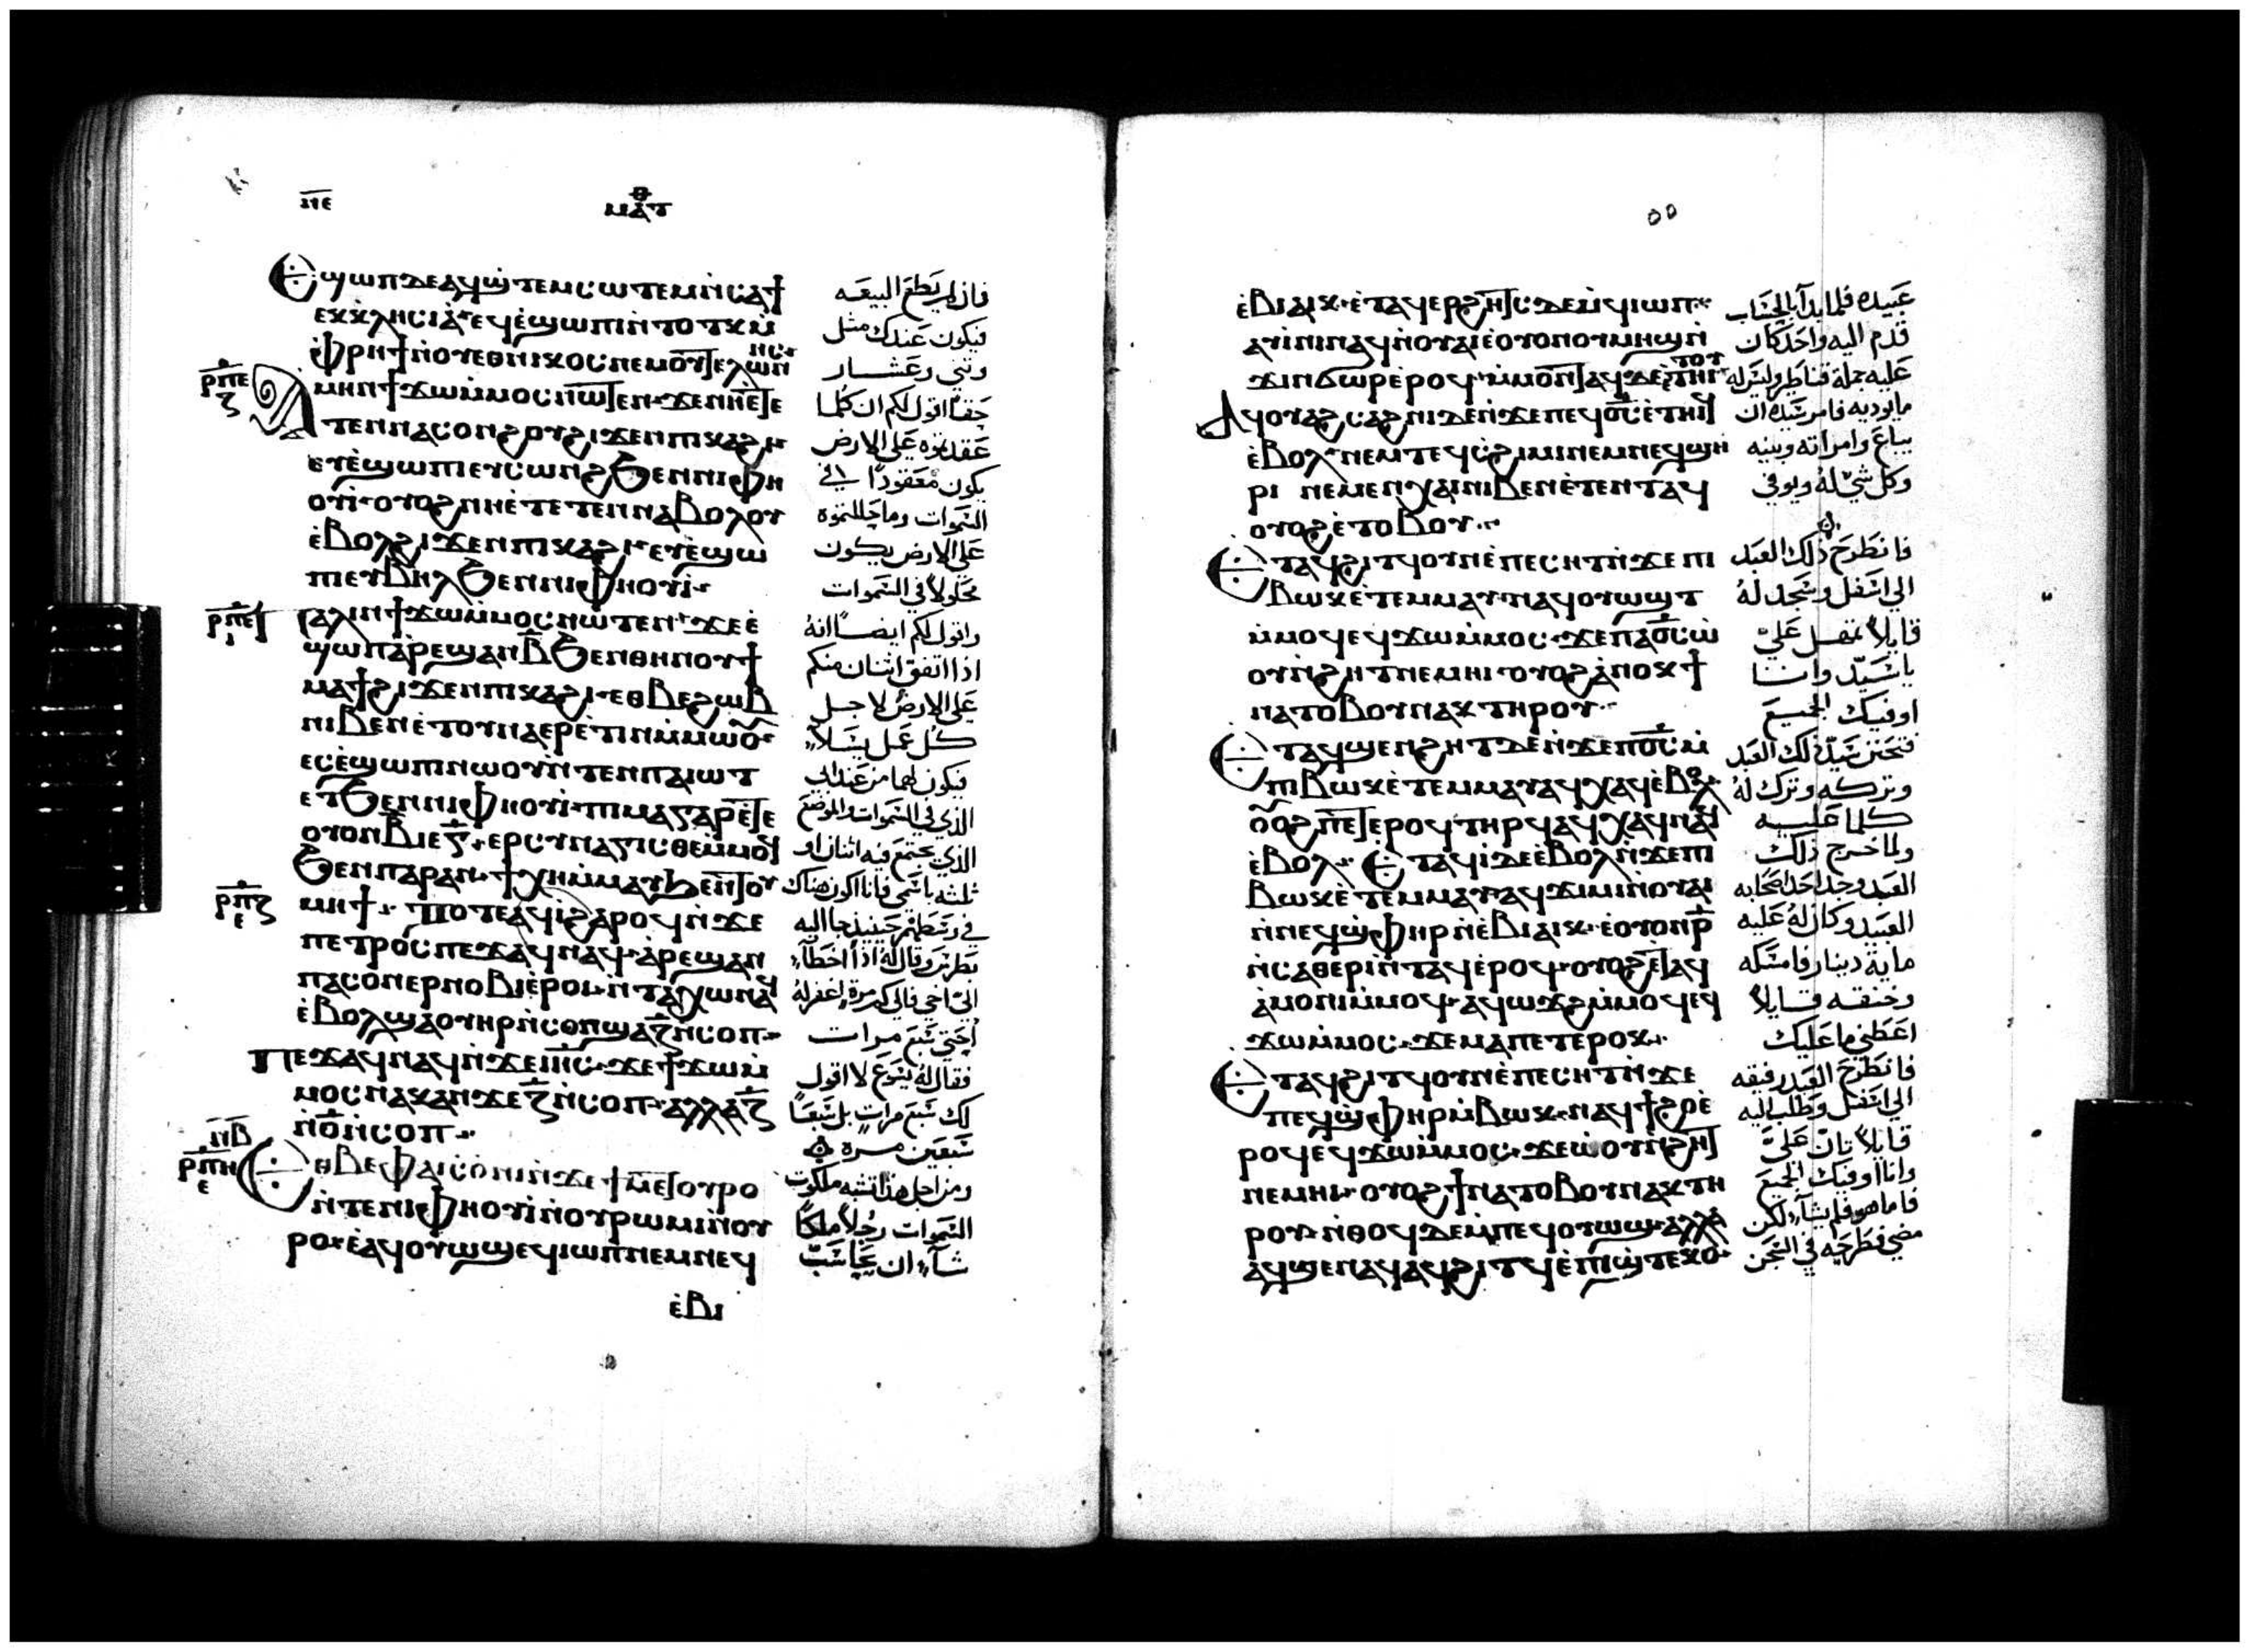 ⲛⲉ
ⲙⲁⲧⲑ
Ⲉϣⲱⲡⲇⲉⲁϥϣ̀ⲧⲉⲙⲥⲱⲧⲉⲙⲛ̀ⲥⲁϯ
ⲉⲕⲕⲗⲏⲥⲓⲁ̀ⲉϥⲉ̀ϣⲱⲡⲓⲛ̀ⲧⲟⲧⲕⲙ̀
ⲫ̀ⲣⲏϯⲛ̀ⲟⲩⲉⲑⲛⲓⲕⲟⲥⲛⲉⲙⲟⲩⲧⲉⲗⲱⲛⲏⲥ
ⲣⲡⲉ
ⲍ
Ⲁⲙⲏⲛϯϫⲱⲙ̀ⲙⲟⲥⲛⲱⲧⲉⲛ ϫⲉⲛⲏⲉ̀ⲧⲉ
ⲧⲉⲛⲛⲁⲥⲟⲛϩⲟⲩϩⲓϫⲉⲛⲡⲓⲕⲁϩⲓ
ⲉⲩⲉ̀ϣⲱⲡⲓⲉⲩⲥⲱⲛϩϧⲉⲛⲛⲓⲫⲏ
ⲟⲩⲓ̀ ⲟⲩⲟϩⲛⲏⲉ̀ⲧⲉⲧⲉⲛⲛⲁⲃⲟⲗⲟⲩ
ⲉ̀ⲃⲟⲗϩⲓϫⲉⲛⲡⲓⲕⲁϩⲓ ⲉⲩⲉ̀ϣⲱ
ⲡⲓⲉⲩⲃⲏⲗϧⲉⲛⲛⲓⲫⲏⲟⲩⲓ̀
ⲡⲁⲗⲓⲛϯϫⲱⲙ̀ⲙⲟⲥⲛⲱⲧⲉⲛ ϫⲉⲉ̀
ϣⲱⲡⲁⲣⲉϣⲁⲛⲃ̅ϧⲉⲛⲑⲏⲛⲟⲩϯ
ⲙⲁϯϩⲓϫⲉⲛⲡⲓⲕⲁϩⲓ ⲉⲑⲃⲉϩⲱⲃ
ⲛⲓⲃⲉⲛⲉ̀ⲧⲟⲩⲛⲁⲉⲣⲉ̀ⲧⲓⲛⲙ̀ⲙⲱⲟⲩ
ⲉⲥⲉ̀ϣⲱⲡⲓⲛⲱⲟⲩⲛ̀ⲧⲉⲛⲡⲁⲓⲱⲧ
ⲉⲧϧⲉⲛⲛⲓⲫⲏⲟⲩⲓ̀ ⲡⲓⲙⲁⲅⲁⲣⲉ̀ⲧⲉ
ⲟⲩⲟⲛⲃ̅ⲓⲉⲅ̅ ⲉⲣⲥⲩⲛⲁⲅⲓⲥⲑⲉⲙ̀ⲙⲟϥ
ϧⲉⲛⲡⲁⲣⲁⲛ ϯⲭⲏⲙ̀ⲙⲁⲩϧⲉⲛⲧⲟⲩ
ⲣⲡⲍ
ⲉ
ⲙⲏϯ Ⲧⲟⲧⲉⲁϥⲓ̀ϩⲁⲣⲟϥⲛ̀ϫⲉ
ⲡⲉⲧⲣⲟⲥⲡⲉϫⲁϥⲛⲁϥ ⲁ̀ⲣⲉϣⲁⲛ
ⲡⲁⲥⲟⲛⲉⲣⲛⲟⲃⲓⲉ̀ⲣⲟⲓ ⲛ̀ⲧⲁⲭⲱⲛⲁϥ
ⲉ̀ⲃⲟⲗϣⲁⲟⲩⲏⲣⲛ̀ⲥⲟⲡϣⲁⲍ̅ⲛ̀ⲥⲟⲡ
Ⲡⲉϫⲁϥⲛⲁϥⲛ̀ϫⲉⲓⲏ̅ⲥ̅ ϫⲉϯϫⲱⲙ̀
ⲙⲟⲥⲛⲁⲕⲁⲛϫⲉⲍ̅ⲛ̀ⲥⲟⲡ ⲁⲗⲗⲁⲍ̅
ⲛ̀ⲟ̅ⲛ̀ⲥⲟⲡ
ⲛⲃ
ⲣⲡⲏ
ⲉ
Ⲉⲑⲃⲉⲫⲁⲓⲥ̀ⲟ̀ⲛⲓⲛ̀ϫⲉϯⲙⲉⲧⲟⲩⲣⲟ
ⲛ̀ⲧⲉⲛⲓⲫⲏⲟⲩⲓ̀ⲛ̀ⲟⲩⲣⲱⲙⲓⲛ̀ⲟⲩ
ⲣⲟ ⲉ̀ⲁϥⲟⲩⲱϣⲉϥⲓⲱⲡⲛⲉⲙⲛⲉϥ
ⲉ̀ⲃⲓ
فان لم يطع البيعه
فيكون عندك مثل
وثني وعشار
حقا اقول لكم ان كلما
عقدتموه على الارض
يكون معقودا في
السموات وما حللتموه
على الارض يكون
محلولا في السموات
واقول لكم ايضا انه
اذا اتفق اثنان منكم
على الارض لاجل
كل عمل يسلا
فيكون لهما من عند ابي
الذي في السموات الموضع
الذي يجتمع فيه اثنان او
ثلثه باسمي فانا اكون هناك
في وسطهم حينيذ جا اليه
بطرس وقال له اذا اخطا
الي اخي فالي كم مرة اغفر له
احتي سبع مرات
فقال له يسوع لا اقول
لك سبع مرات بل سبعا
سبعين مره
ومن اجل هذا تشبه ملكوت
السموات رجلا ملكا
شاء ان يحاسب
٥٥
ⲉ̀ⲃⲓⲁⲓⲕ ⲉ̀ⲧⲁϥⲉⲣϩⲏⲧⲥⲇⲉⲛ̀ϥⲓⲱⲡ
ⲁⲩⲓ̀ⲛⲓⲛⲁϥⲛ̀ⲟⲩⲁⲓⲉ̀ⲟⲩⲟⲛⲟⲩⲙⲏϣⲛ̀
ϫⲓⲛϭⲱⲣⲉ̀ⲣⲟϥ ⲙ̀ⲙⲟⲛⲧⲁϥⲇⲉⲉ̀ⲧⲏⲓⲧⲟⲩ
Ⲁϥⲟⲩⲁϩⲥⲁϩⲛⲓⲇⲉⲛ̀ϫⲉⲡⲉϥⲟ̅ⲥ̅ⲉ̀ⲧⲏⲓϥ
ⲉ̀ⲃⲟⲗ ⲛⲉⲙⲧⲉϥⲥ̀ϩⲓⲙⲓⲛⲉⲙⲛⲉϥϣⲏ
ⲣⲓ ⲛⲉⲙⲉⲛⲭⲁⲓⲛⲓⲃⲉⲛⲉ̀ⲧⲉⲛⲧⲁϥ
ⲟⲩⲟϩⲉ̀ⲧⲟⲃⲟⲩ
Ⲉⲧⲁϥϩⲓⲧϥⲟⲩⲛⲉ̀ⲡⲉⲥⲏⲧⲛ̀ϫⲉⲡⲓ
ⲃⲱⲕⲉ̀ⲧⲉⲙⲙⲁⲩ ⲛⲁϥⲟⲩⲱϣⲧ
ⲙ̀ⲙⲟϥⲉϥϫⲱⲙ̀ⲙⲟⲥ ϫⲉⲡⲁⲟ̅ⲥ̅ⲱ̀
ⲟⲩⲛ̀ϩⲏⲧⲛⲉⲙⲏⲓ ⲟⲩⲟϩⲁ̀ⲛⲟⲕϯ
ⲛⲁⲧⲟⲃⲟⲩⲛⲁⲕⲧⲏⲣⲟⲩ
Ⲉⲧⲁϥϣⲉⲛϩⲏⲧⲇⲉⲛ̀ϫⲉⲡⲟ̅ⲥ̅ⲙ̀
ⲡⲓⲃⲱⲕⲉ̀ⲧⲉⲙⲙⲁⲩⲁϥⲭⲁϥⲉ̀ⲃⲟⲗ
ⲟⲩⲟϩⲡⲉⲧⲉ̀ⲣⲟϥⲧⲏⲣϥⲁϥⲭⲁϥⲛⲁϥ
ⲉ̀ⲃⲟⲗ Ⲉⲧⲁϥⲓ̀ⲇⲉⲉ̀ⲃⲟⲗⲛ̀ϫⲉⲡⲓ
ⲃⲱⲕⲉ̀ⲧⲉⲙⲙⲁⲩ ⲁϥϫⲓⲙⲓⲛ̀ⲟⲩⲁⲓ
ⲛ̀ⲛⲉϥϣ̀ⲫⲏⲣⲛ̀ⲉ̀ⲃⲓⲁⲓⲕ ⲉ̀ⲟⲩⲟⲛⲣ̅
ⲛ̀ⲥⲁⲑⲉⲣⲓⲛ̀ⲧⲁϥⲉ̀ⲣⲟϥ ⲟⲩⲟϩⲉ̀ⲧⲁϥ
ⲁ̀ⲙⲟⲛⲓⲙ̀ⲙⲟϥ ⲁϥⲱϫϩⲙ̀ⲙⲟϥⲉϥ
ϫⲱⲙ̀ⲙⲟⲥ ϫⲉⲙⲁⲡⲉⲧⲉⲣⲟⲕ
Ⲉⲧⲁϥϩⲓⲧϥⲟⲩⲛⲉ̀ⲡⲉⲥⲏⲧⲛ̀ϫⲉ
ⲡⲉϥϣ̀ⲫⲏⲣⲙ̀ⲃⲱⲕ ⲛⲁϥϯϩⲟⲉ̀
ⲣⲟϥⲉϥϫⲱⲙ̀ⲙⲟⲥ ϫⲉⲱ̀ⲟⲩⲛ̀ϩⲏⲧ
ⲛⲉⲙⲏⲓ ⲟⲩⲟϩϯⲛⲁⲧⲟⲃⲟⲩⲛⲁⲕⲧⲏ
ⲣⲟⲩ ⲛ̀ⲑⲟϥⲇⲉⲙ̀ⲡⲉϥⲟⲩⲱϣ ⲁⲗⲗⲁ
ⲁϥϣⲉⲛⲁϥⲁϥϩⲓⲧϥⲉ̀ⲡⲓϣ̀ⲧⲉⲕⲟ
عبيده فلما بدا بالحساب
قدم اليه واحد كان
عليه جملة قناطير وليس له
ما يوديه فامر سيده ان
يباع وامراته وبنيه
وكل شي له ويوفي
فانطرح ذلك العبد
الي اسفل وسجد له
قايلا تمهل علي
يا سيد وانا
اوفيك الجميع
فتحنن سيد ذلك العبد
وتركه وترك له
كلما عليه
ولما خرج ذلك
العبد وجد احد اصحابه
العبيد وكان له عليه
ماية دينار فامسكه
وخنقه قايلا
اعطني ما عليك
فانطرح العبد رفيقه
الي اسفل وطلب اليه
قايلا تان علي
وانا اوفيك الجميع
فاما هو فلم يشاء لكن
مضي فطرحه في السجن